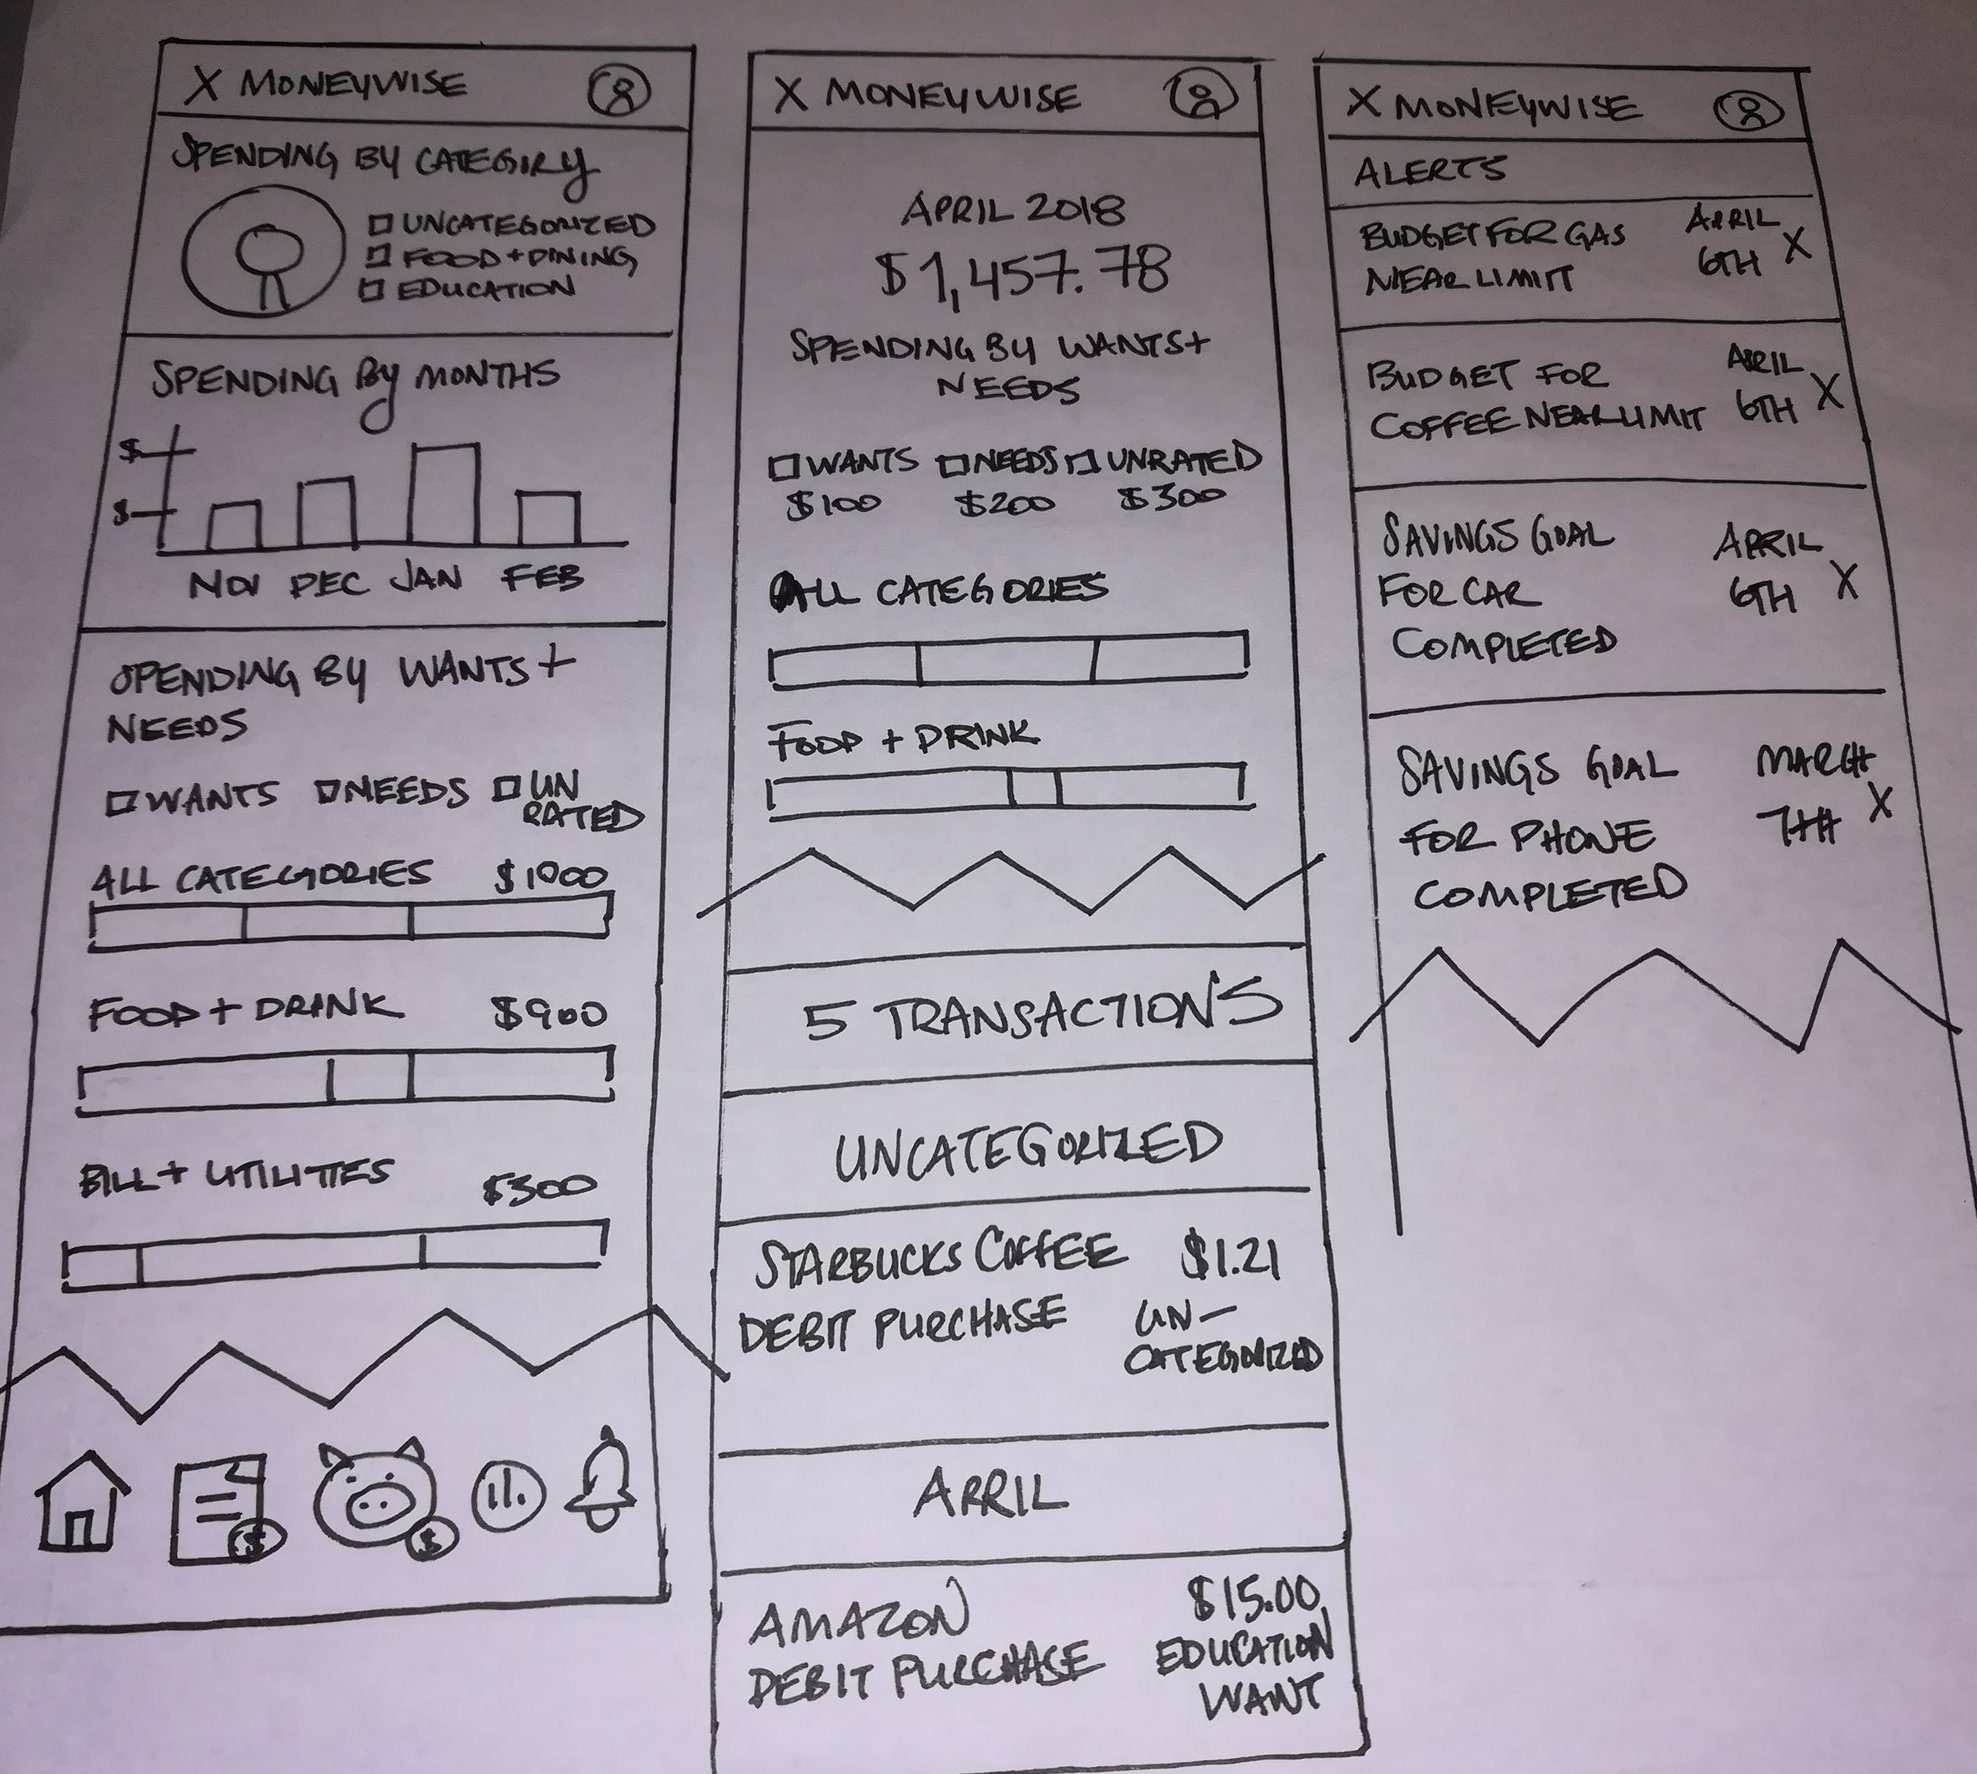 X MONEYWISE
SPENDING BY CATEGIRY
UNCATEGORIZED
FOOD + DINING
EDUCATION
SPENDING BY MONTHS
$
$
NOV DEC JAN FEB
SPENDING BY WANTS +
NEEDS
WANTS NEEDS UN
RATED
ALL CATEGORIES $1000
FOOD + DRINK $900
BILL + UTILITIES $300
$ $
X MONEYWISE
APRIL 2018
$1,457.78
SPENDING BY WANTS +
NEEDS
WANTS NEEDS UNRATED
$100 $200 $300
ALL CATEGORIES
FOOD + DRINK
5 TRANSACTIONS
UNCATEGORIZED
STARBUCKS COFFEE $1.21
DEBIT PURCHASE UN-
CATEGORIZED
APRIL
AMAZON $15.00
DEBIT PURCHASE EDUCATION
WANT
X MONEYWISE
ALERTS
BUDGET FOR GAS APRIL
NEAR LIMIT 6TH X
BUDGET FOR APRIL
COFFEE NEAR LIMIT 6TH X
SAVINGS GOAL APRIL
FOR CAR 6TH X
COMPLETED
SAVINGS GOAL MARCH
FOR PHONE 7TH X
COMPLETED